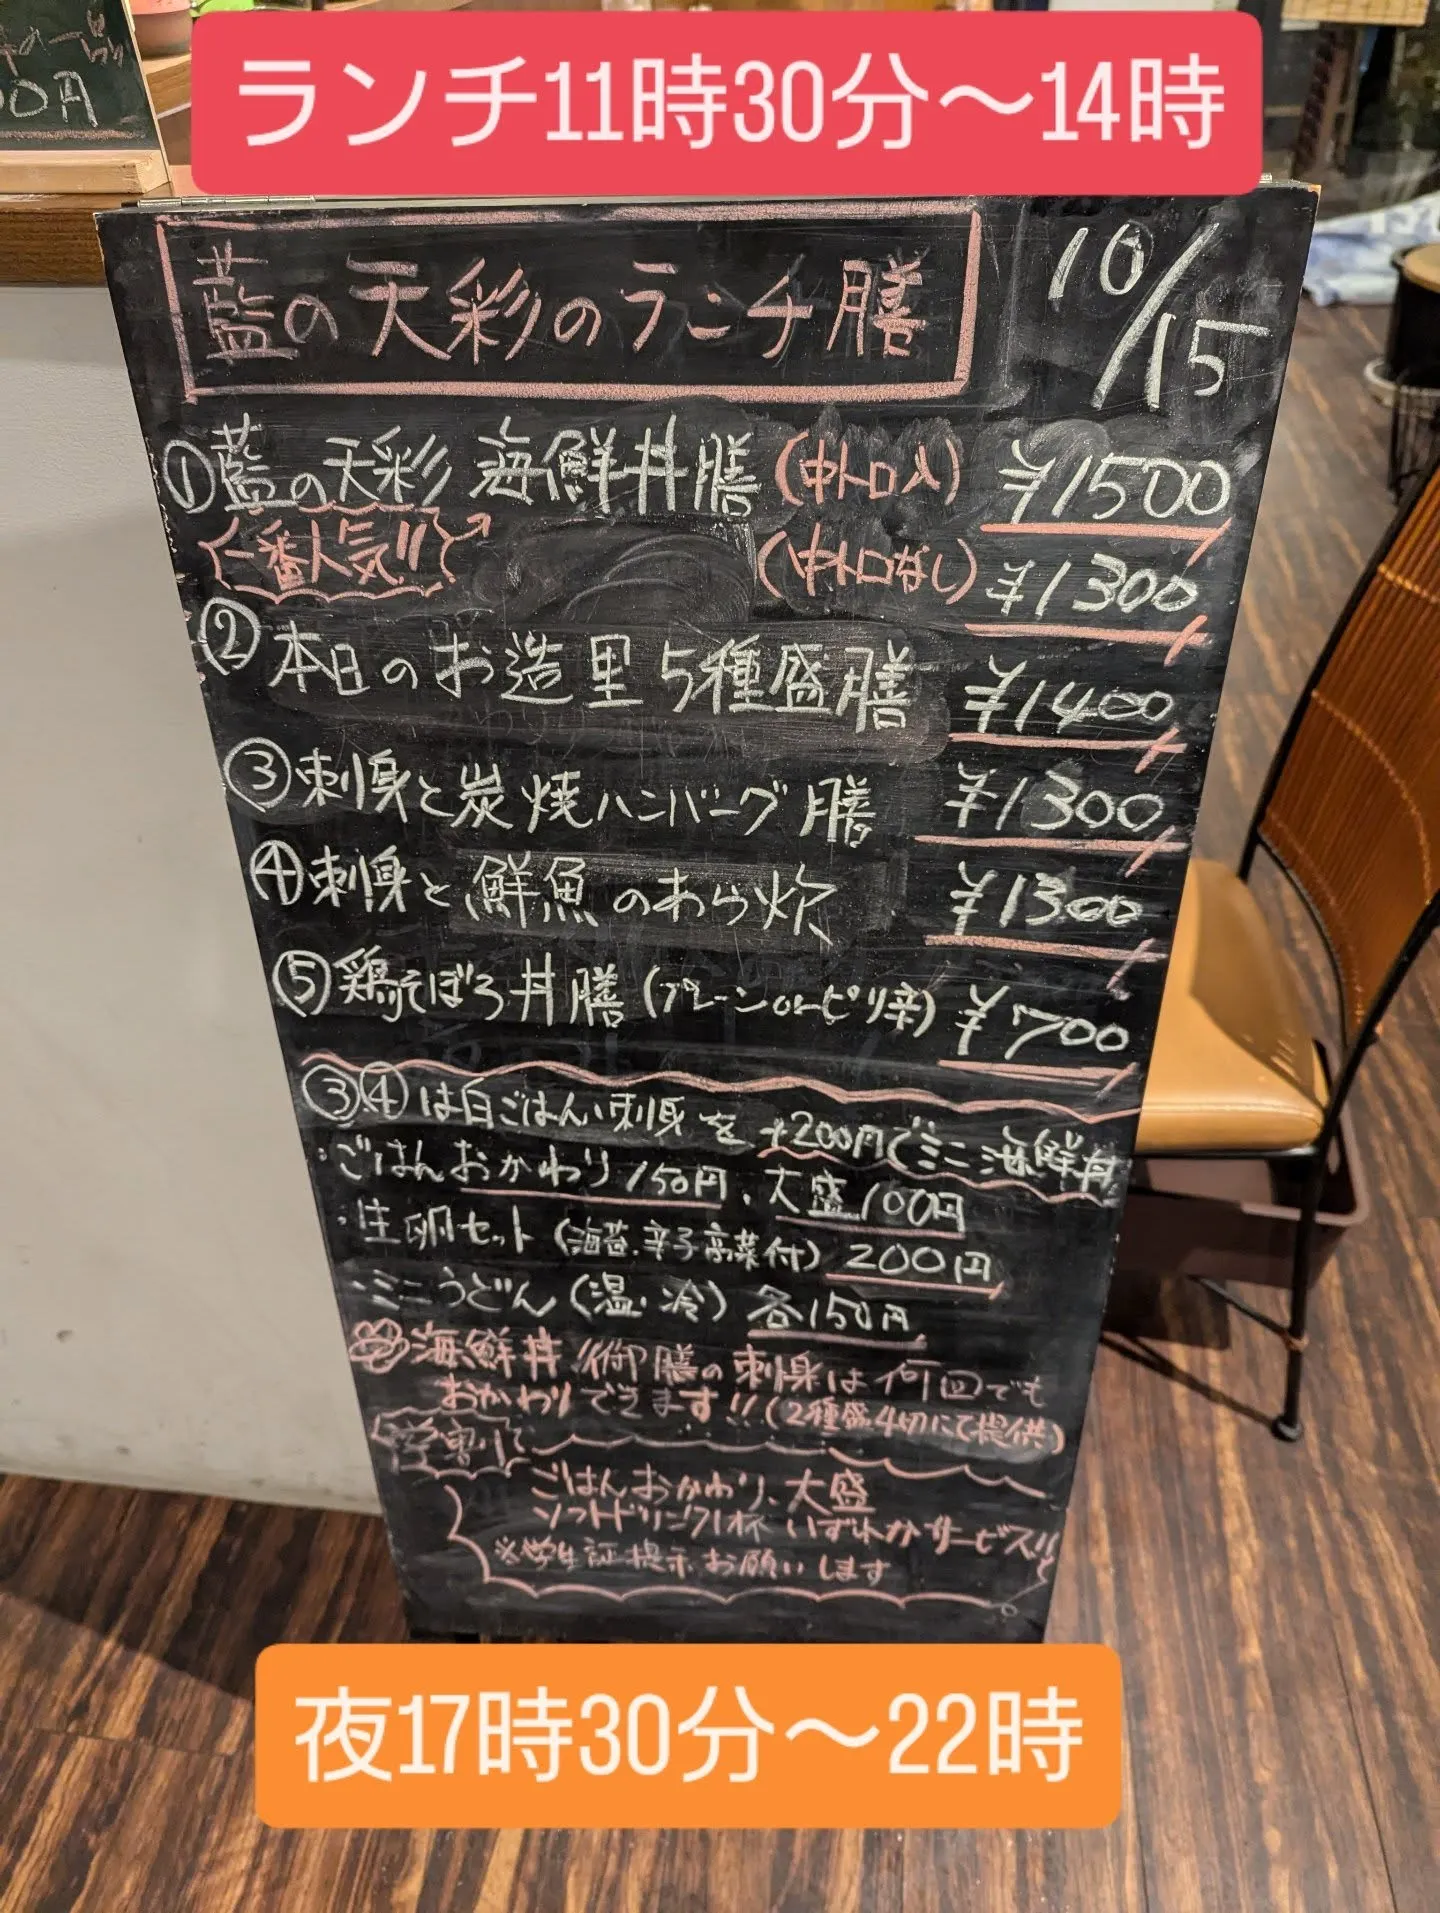 00円
ランチ11時30分〜14時
藍の天彩のランチ膳
10/15
①藍の天彩 海鮮丼膳(中トロ入) ¥1500
一番人気!! (中トロなし) ¥1300
②本日のお造里5種盛膳 ¥1400
③刺身と炭焼ハンバーグ膳 ¥1300
④刺身と鮮魚のあら炊 ¥1300
⑤鶏そぼろ丼膳(プレーンorピリ辛) ¥700
③④は白ごはん、刺身を+200円でミニ海鮮丼
・ごはんおかわり150円、大盛100円
・生卵セット(海苔、辛子高菜付) 200円
・ミニうどん(温、冷) 各150円
海鮮丼、御膳の刺身は何回でも
おかわりできます!!(2種盛4切にて提供)
学割にて
ごはんおかわり、大盛
ソフトドリンク1杯 いずれかサービス!!
※学生証提示お願いします
夜17時30分〜22時